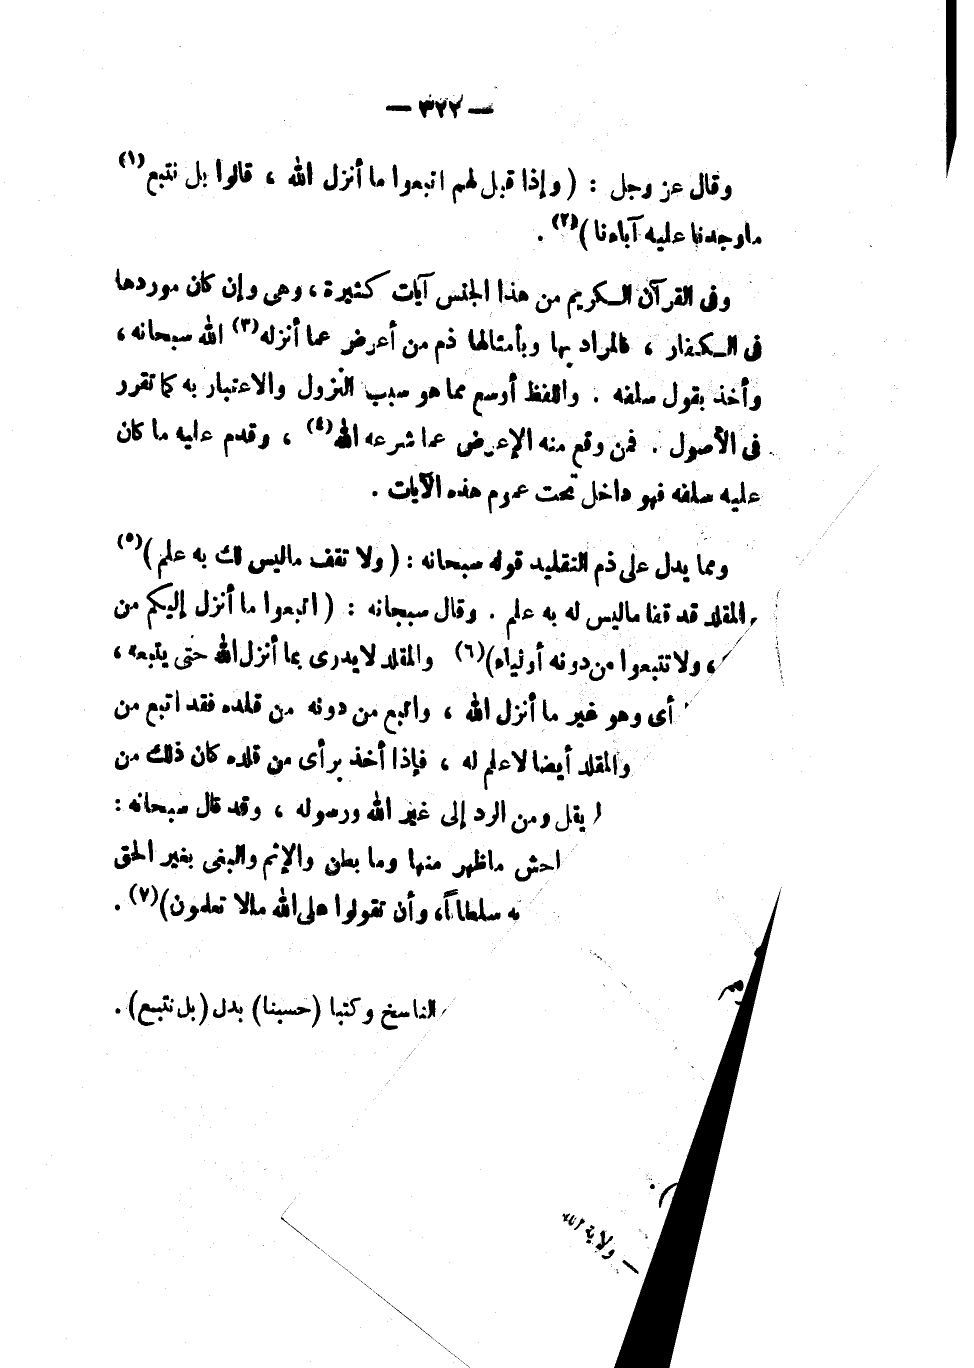 — ٣٢٢ —
وقال عز وجل : ( وإذا قيل لهم اتبعوا ما أنزل الله ، قالوا بل نتبع (١)
ماوجدنا عليه آباءنا )(٢) .
وفى القرآن الـكريم من هذا الجنس آيات كثيرة ، وهى وإن كان موردها
فى الـكفار ، فالمراد بها وبأمثالها ذم من أعرض عما أنزله (٣) الله سبحانه ،
وأخذ بقول سلفه . واللفظ أوسع مما هو سبب النزول والاعتبار به كما تقرر
فى الأصول . فمن وقع منه الإعرض عما شرعه الله (٤) ، وقدم عليه ما كان
عليه سلفه فهو داخل تحت عموم هذه الآيات .
ومما يدل على ذم التقليد قوله سبحانه : ( ولا تقف ماليس لك به علم )(٥)
المقلد قد قفا ماليس له به علم . وقال سبحانه : ( اتبعوا ما أنزل إليكم من
، ولا تتبعوا من دونه أولياء)(٦) والمقلد لا يدرى بما أنزل الله حتى يتبعه ،
أى وهو غير ما أنزل الله ، واتبع من دونه من قلده فقد اتبع من
والمقلد أيضا لاعلم له ، فإذا أخذ برأى من قلده كان ذلك من
يقل ومن الرد إلى غير الله ورسوله ، وقد قال سبحانه :
احش ماظهر منها وما بطن والإثم والبغى بغير الحق
ه سلطاناً ، وأن تقولوا على الله مالا تعلمون )(٧) .
الناسخ وكتبا (حسبنا) بدل (بل نتبع) .
— ولاية الله